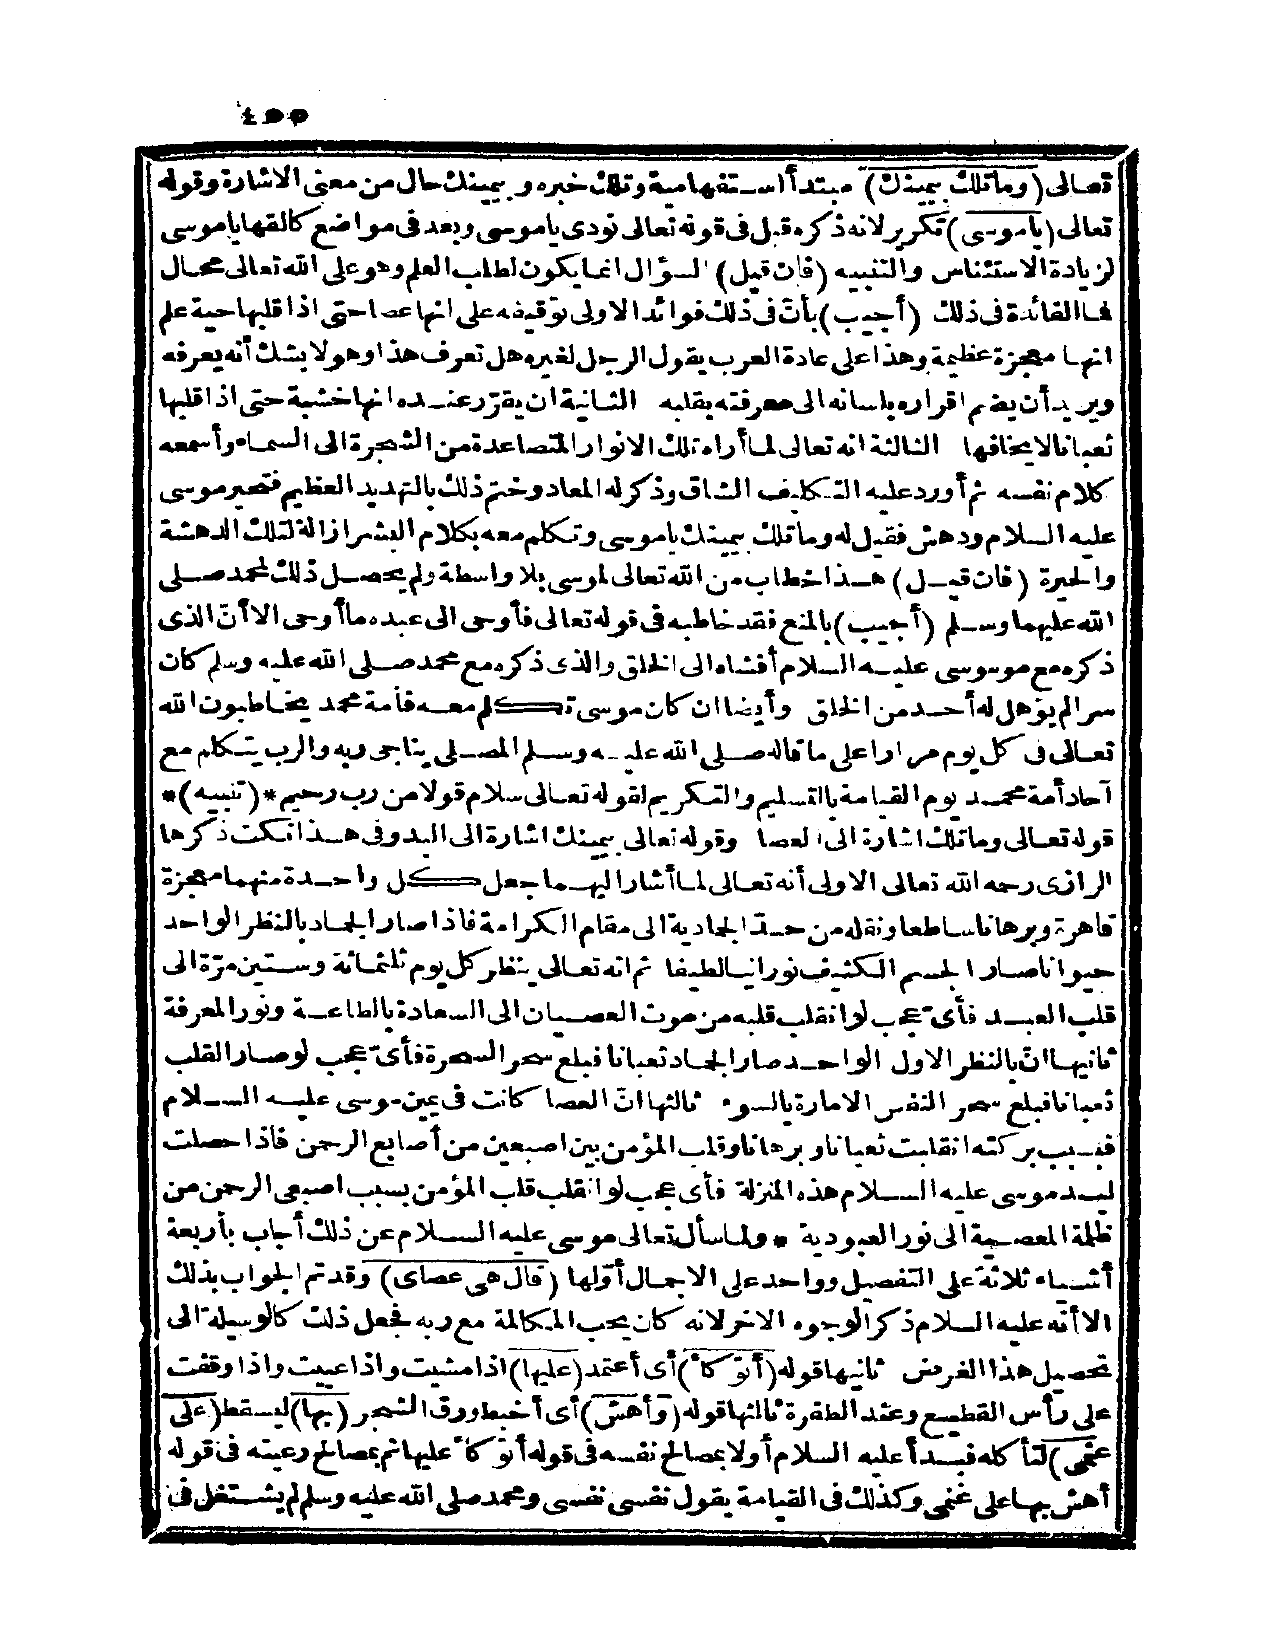 ٤٥٥
تعالى (وما تلك بيمينك) مبتدأ استفهامية وتلك خبره وبيمينك حال من معنى الاشارة وقوله
تعالى (ياموسى) تكرير لانه ذكره قبل فى قوله تعالى نودى ياموسى وبعد فى مواضع كألقها ياموسى
لزيادة الاستئناس والتنبيه (فان قيل) السؤال انما يكون لطلب العلم وهو على الله تعالى محال
فما الفائدة فى ذلك (أجيب) بأنّ فى ذلك فوائد الاولى توقيفه على انها عصا حتى اذا قلبها حية علم
انها معجزة عظيمة وهذا على عادة العرب يقول الرجل لغيره هل تعرف هذا وهو لا يشك أنه يعرفه
ويريد أن يضم اقراره بلسانه الى معرفته بقلبه الثانية ان يقرّر عنده انها خشبة حتى اذا قلبها
ثعبانا لا يخافها الثالثة انه تعالى لما أراه تلك الانوار المتصاعدة من الشجرة الى السماء وأسمعه
كلام نفسه ثم أورد عليه التكليف الشاق وذكر له المعاد وختم ذلك بالتهديد العظيم فتحير موسى
عليه السلام ودهش فقيل له وما تلك بيمينك ياموسى وتكلم معه بكلام البشر ازالة لتلك الدهشة
والحيرة (فان قيل) هذا خطاب من الله تعالى لموسى بلا واسطة ولم يحصل ذلك لمحمد صلى
الله عليهما وسلم (أجيب) بالمنع فقد خاطبه فى قوله تعالى فأوحى الى عبده ما أوحى الا أنّ الذى
ذكره مع موسى عليه السلام أفشاه الى الخلق والذى ذكره مع محمد صلى الله عليه وسلم كان
سرا لم يؤهل له أحد من الخلق وأيضا ان كان موسى تكلم معه فأمة محمد يخاطبون الله
تعالى فى كل يوم مرارا على ما قاله صلى الله عليه وسلم المصلى يناجى ربه والرب يتكلم مع
آحاد أمة محمد يوم القيامة بالتسليم والتكريم لقوله تعالى سلام قولا من رب رحيم *(تنبيه)*
قوله تعالى وما تلك اشارة الى العصا وقوله تعالى بيمينك اشارة الى اليد وفى هذا نكت ذكرها
الرازى رحمه الله تعالى الاولى أنه تعالى لما أشار اليهما جعل كل واحدة منهما معجزة
قاهرة وبرهانا ساطعا ونقله من حدّ الجمادية الى مقام الكرامة فاذا صار الجماد بالنظر الواحد
حيوانا صار الجسم الكثيف نورانيا لطيفا ثم انه تعالى ينظر كل يوم ثلثمائة وستين مرّة الى
قلب العبد فأىّ عجب لو انقلب قلبه من موت العصيان الى السعادة بالطاعة ونور المعرفة
ثانيها انّ بالنظر الاول الواحد صار الجماد ثعبانا فبلع سحر السحرة فأىّ عجب لو صار القلب
ثعبانا فبلع سحر النفس الامارة بالسوء ثالثها انّ العصا كانت فى يمين موسى عليه السلام
فبسبب بركته انقلبت ثعبانا وبرهانا وقلب المؤمن بين اصبعين من أصابع الرحمن فاذا حصلت
ليد موسى عليه السلام هذه المنزلة فأى عجب لو انقلب قلب المؤمن بسبب اصبعى الرحمن من
ظلمة المعصية الى نور العبودية * ولما سأل تعالى موسى عليه السلام عن ذلك أجاب بأربعة
أشياء ثلاثة على التفصيل وواحد على الاجمال أوّلها (قال هى عصاى) وقد تم الجواب بذلك
الا أنّه عليه السلام ذكر الوجوه الاخر لانه كان يحب المكالمة مع ربه فجعل ذلك كالوسيلة الى
تحصيل هذا الغرض ثانيها قوله (أتوكأ) أى أعتمد (عليها) اذا مشيت واذا عييت واذا وقفت
على رأس القطيع وعند الطفرة ثالثها قوله (وأهش) أى أخبط ورق الشجر (بها) ليسقط (على
غنمى) لتأكله فبدأ عليه السلام أولا بمصالح نفسه فى قوله أتوكأ عليها ثم بمصالح رعيته فى قوله
أهش بها على غنمى وكذلك فى القيامة يقول نفسى نفسى ومحمد صلى الله عليه وسلم لم يشتغل فى